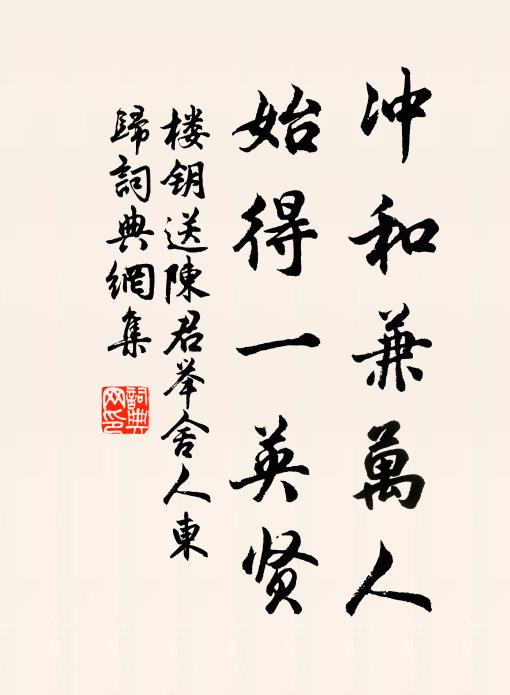 冲和兼萬人
始得一英贤
楼钥送陳君举舍人東
歸詞典網集
詞典
网印